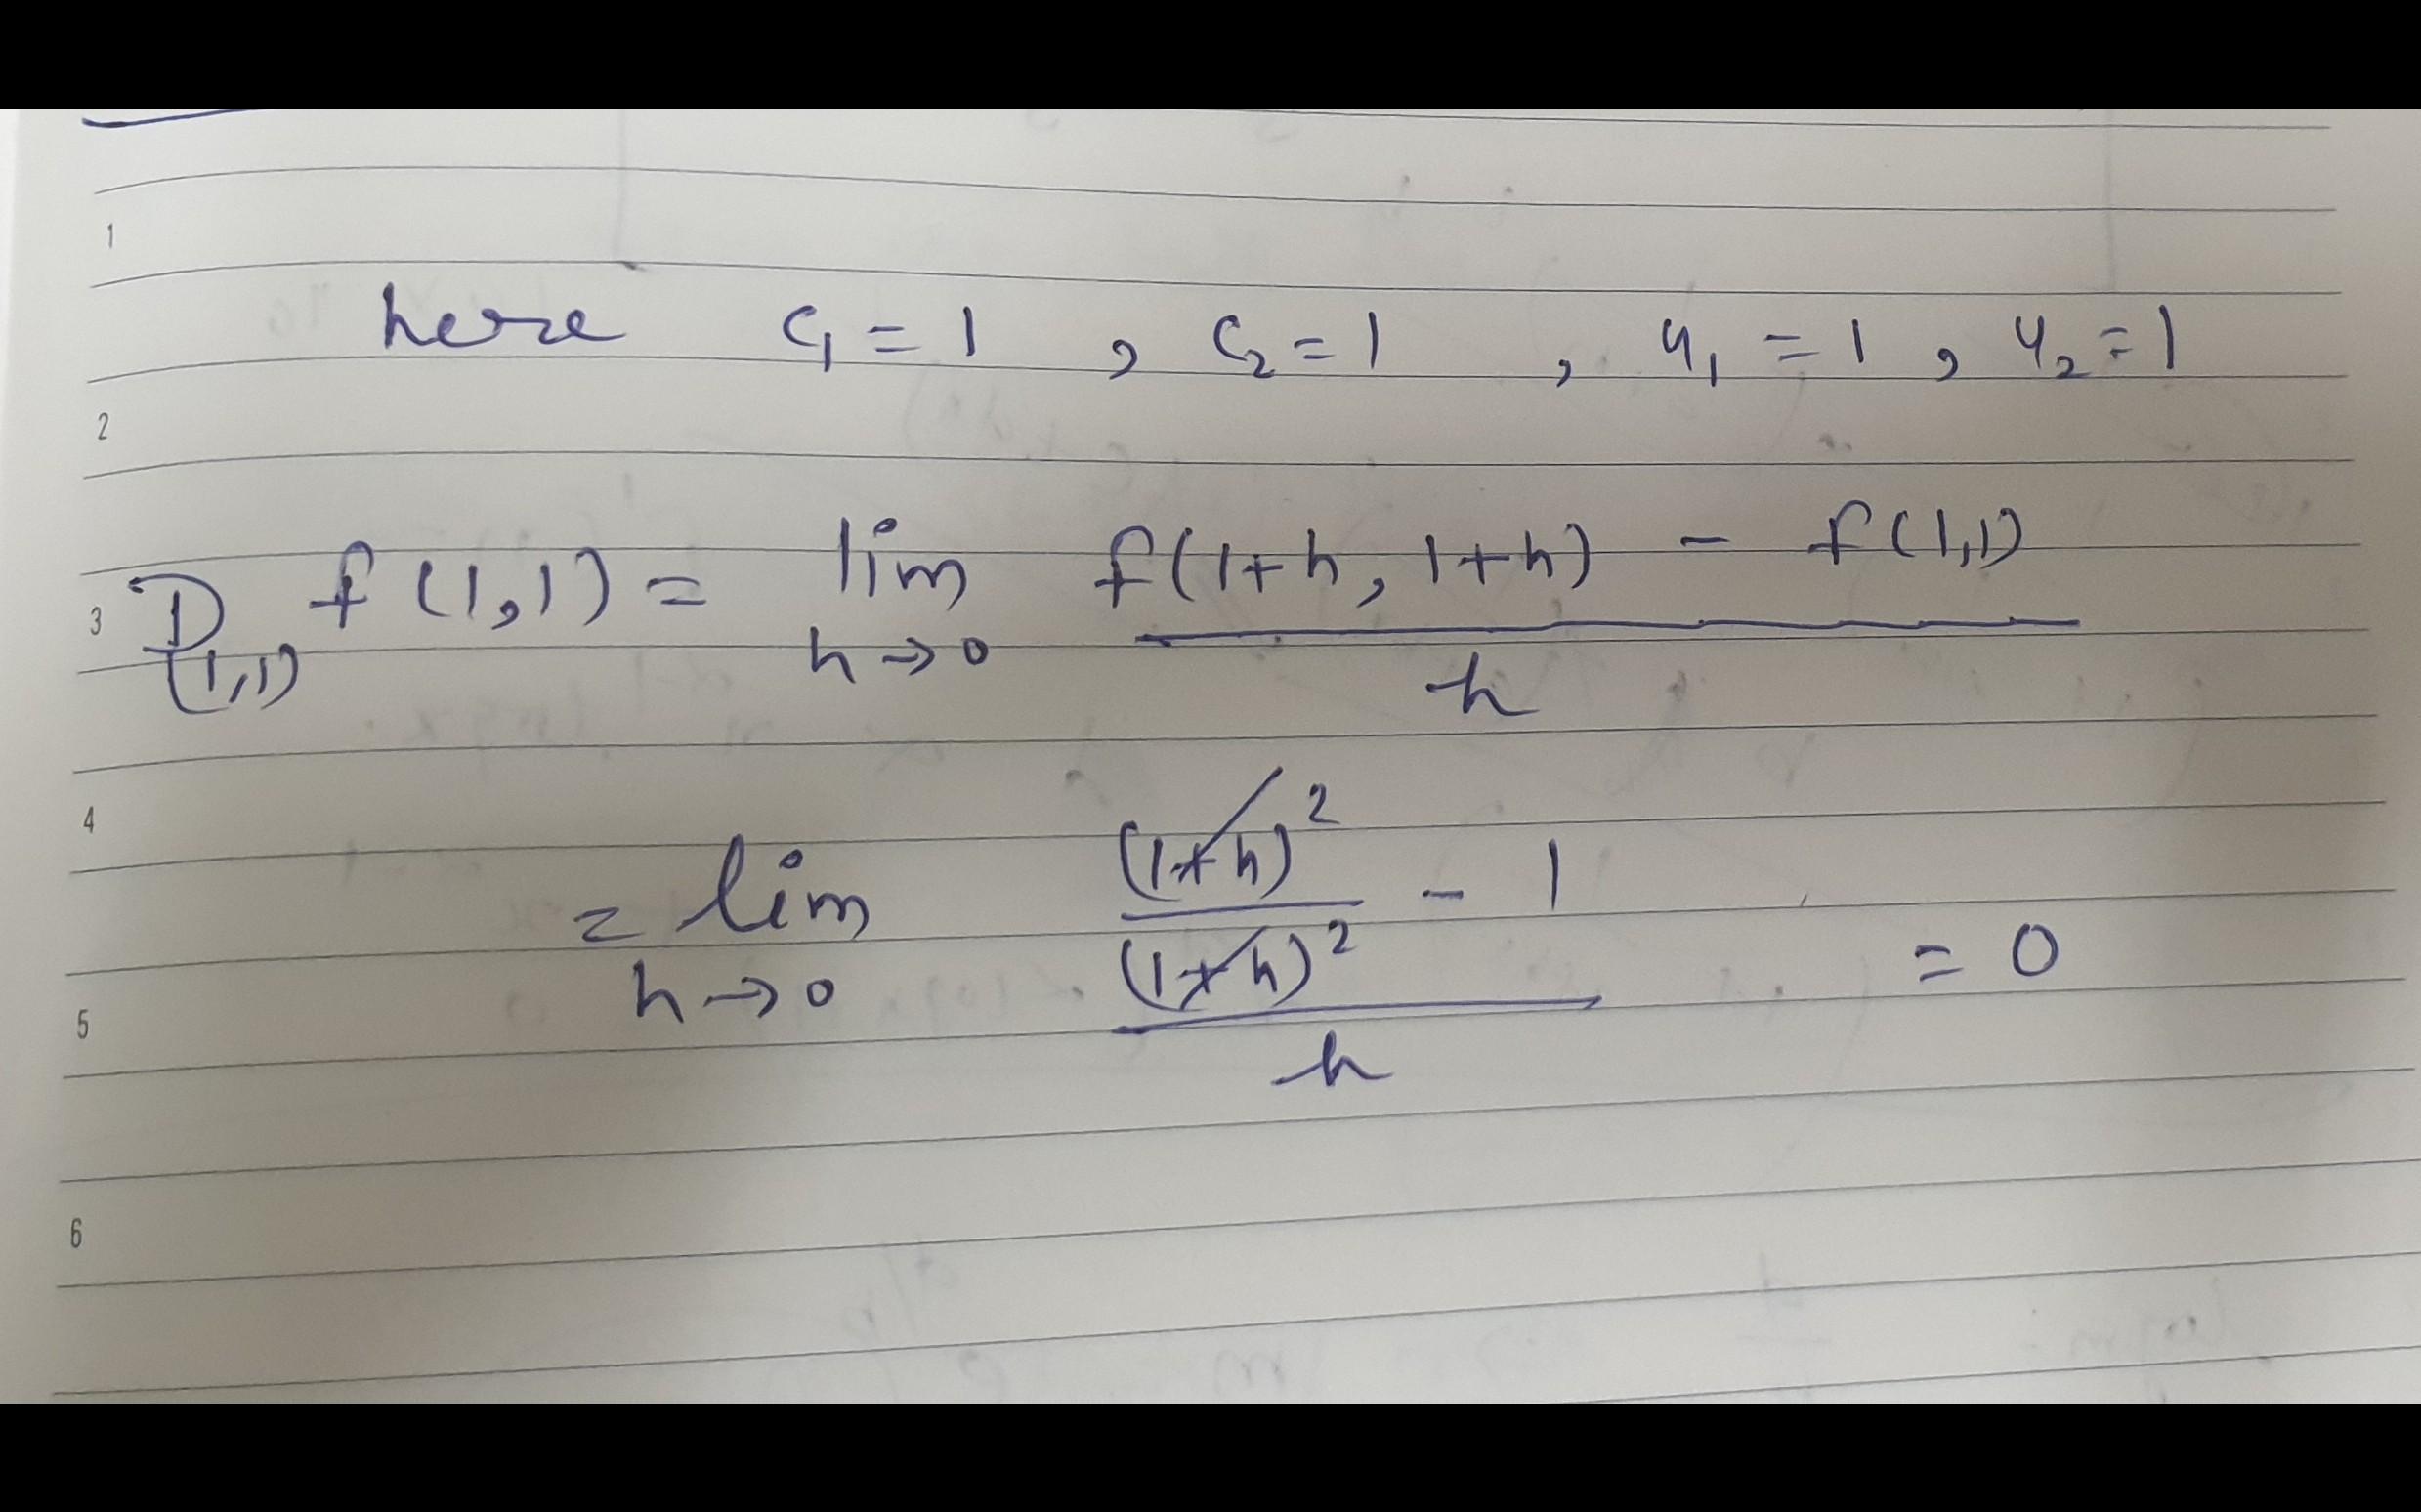 1
here c₁ = 1 , c₂ = 1 , u₁ = 1 , u₂ = 1
2
3 D₍₁,₁₎ f(1,1) = lim h→0 (f(1+h, 1+h) - f(1,1)) / h
4
= lim h→0 ((1+h)² / (1+h)² - 1) / h = 0
5
6